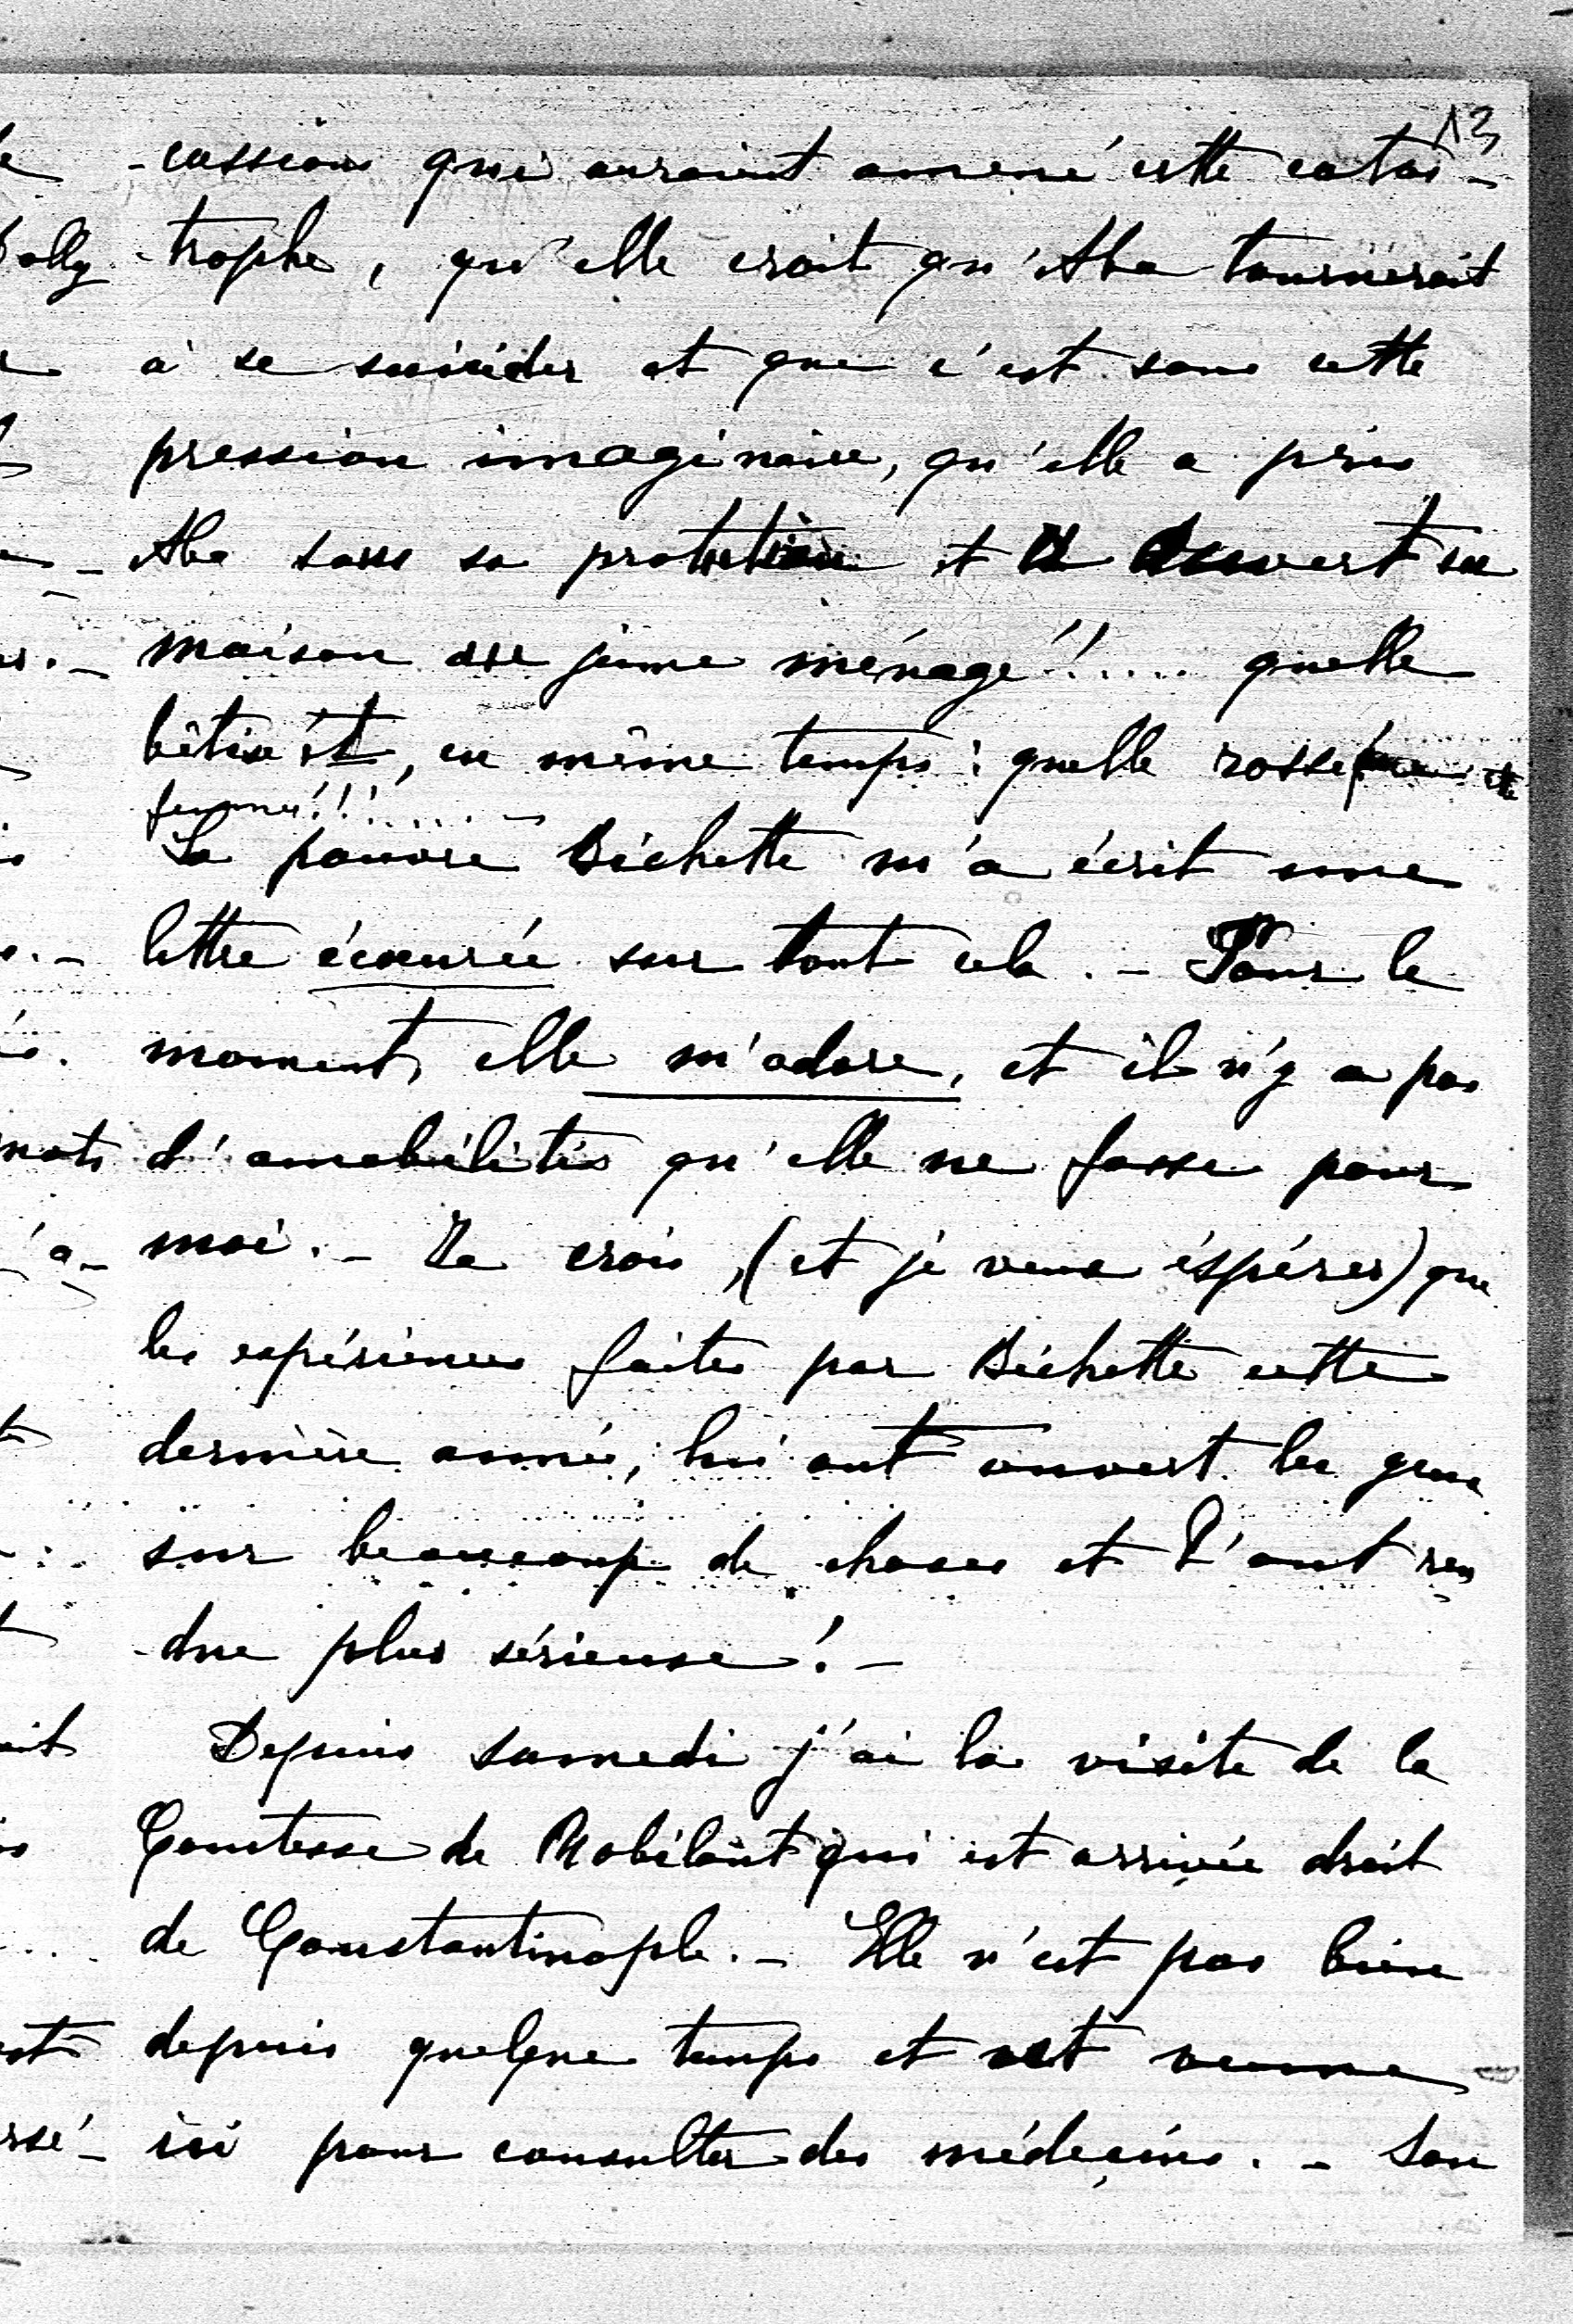 13
-cussions qui auraient amené cette catas-
-trophe, qu'elle croit qu'Aba tournerait
à se suicider et que c'est sous cette
pression imaginaire, qu'elle a pris
Aba sous sa protection et a ouvert sa
maison au jeune ménage!.... quelle
bêtise et, en même temps: quelle rosse
femme!!!.....-
La pauvre Bichette m'a écrit une
lettre écoeurée sur tout cela.- Pour le
moment, elle m'adore, et il n'y a pas
d'amabilités qu'elle ne fasse pour
moi.- Je crois, (et je veux éspérer) que
les expériences faites par Bichette cette
dernière année, lui ont ouvert les yeux
sur beaucoup de choses et l'ont ren
-due plus sérieuse!-
Depuis samedi j'ai la visite de la
Comtesse de Robilant qui est arrivée droit
de Constantinople.- Elle n'est pas bien
depuis quelque temps et est venue
ici pour consulter des médecins.- Son